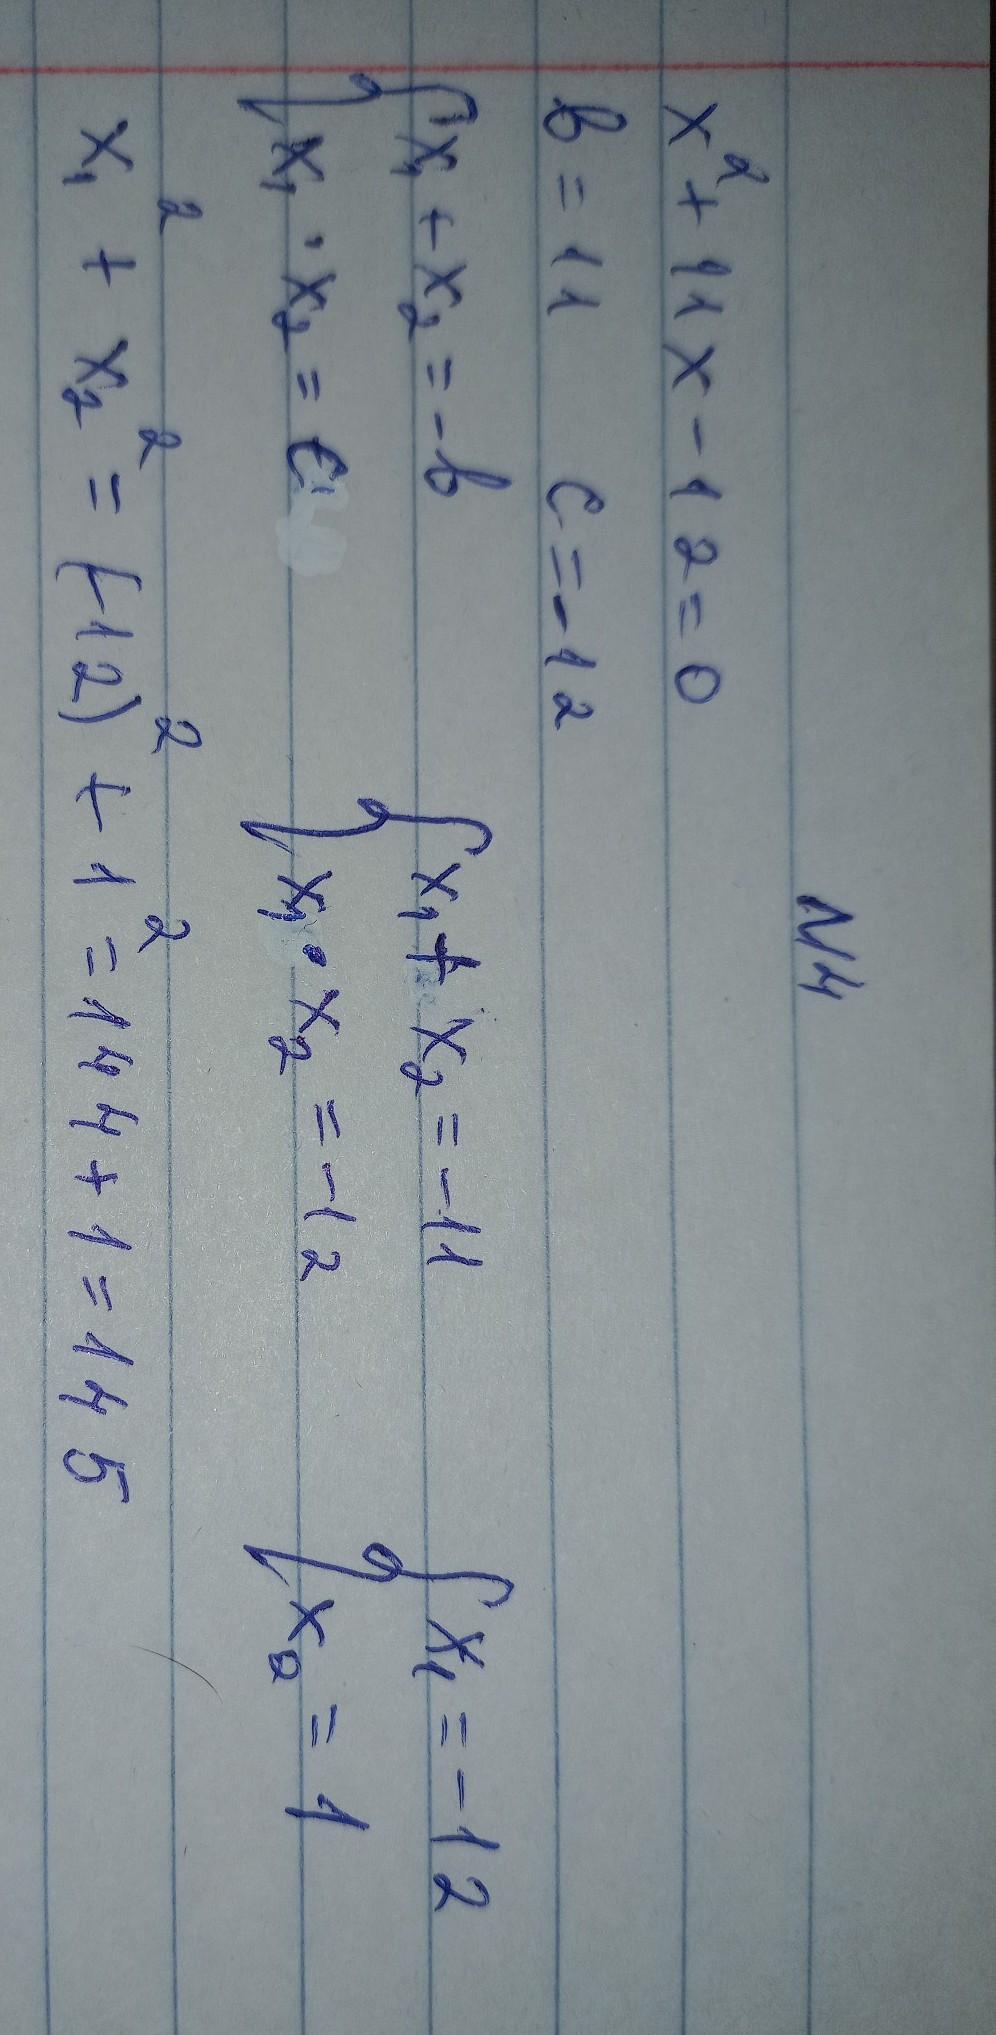 N4
x² + 11x - 12 = 0
b = 11 c = -12
{ x₁ + x₂ = -b { x₁ + x₂ = -11 { x₁ = -12
{ x₁ · x₂ = c { x₁ · x₂ = -12 { x₂ = 1
x₁² + x₂² = (-12)² + 1² = 144 + 1 = 145